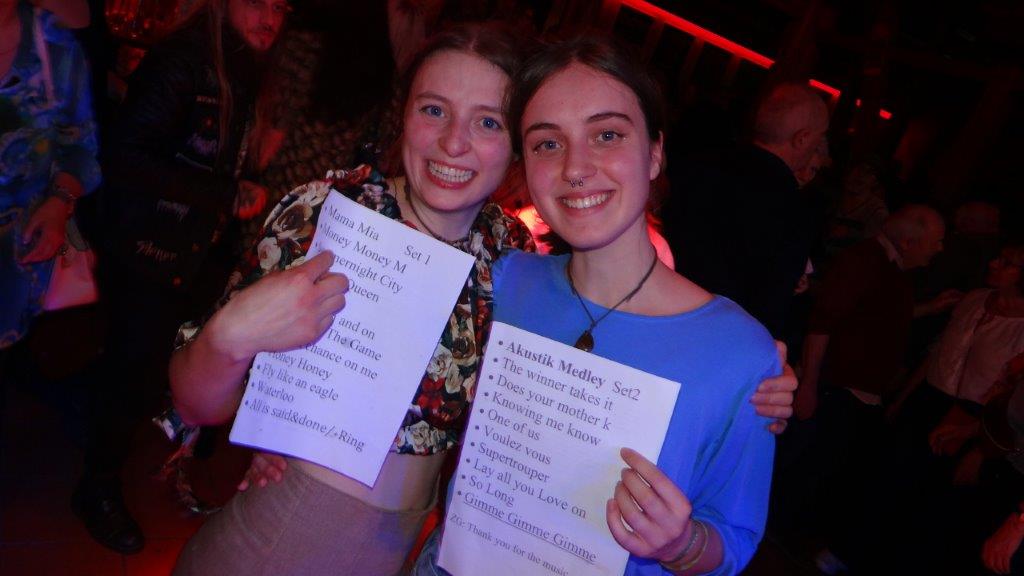 • Mama Mia Set 1
• Money Money M
mernight City
Queen
and on
The Game
hance on me
Honey Honey
• Fly like an eagle
• Waterloo
• All is said&done/+Ring
• Akustik Medley Set2
• The winner takes it
• Does your mother k
• Knowing me know
• One of us
• Voulez vous
• Supertrouper
• Lay all you Love on
• So Long
• Gimme Gimme Gimme
ZG: Thank you for the music